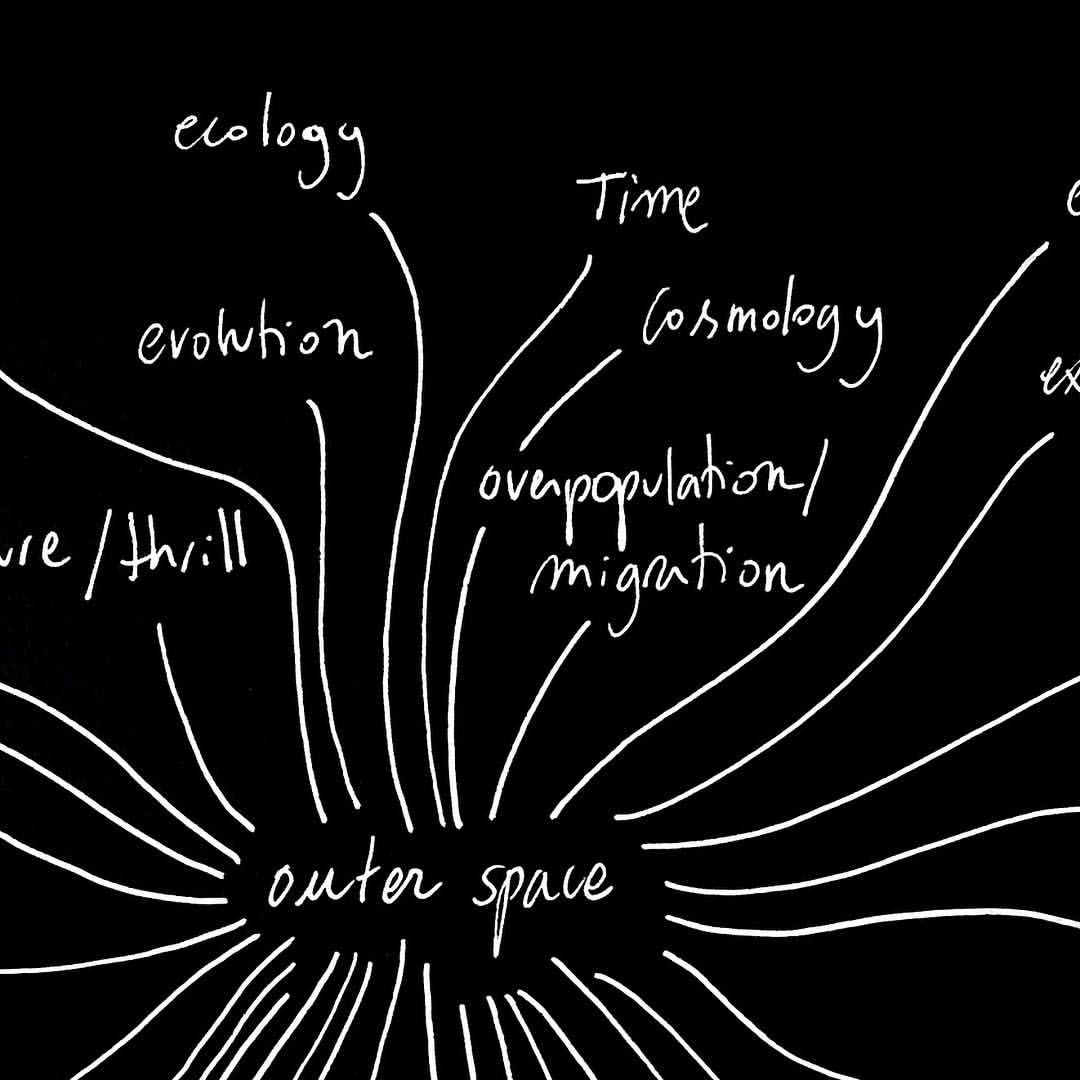 ecology
Time
evolution
Cosmology
overpopulation/
migration
/thrill
outer space